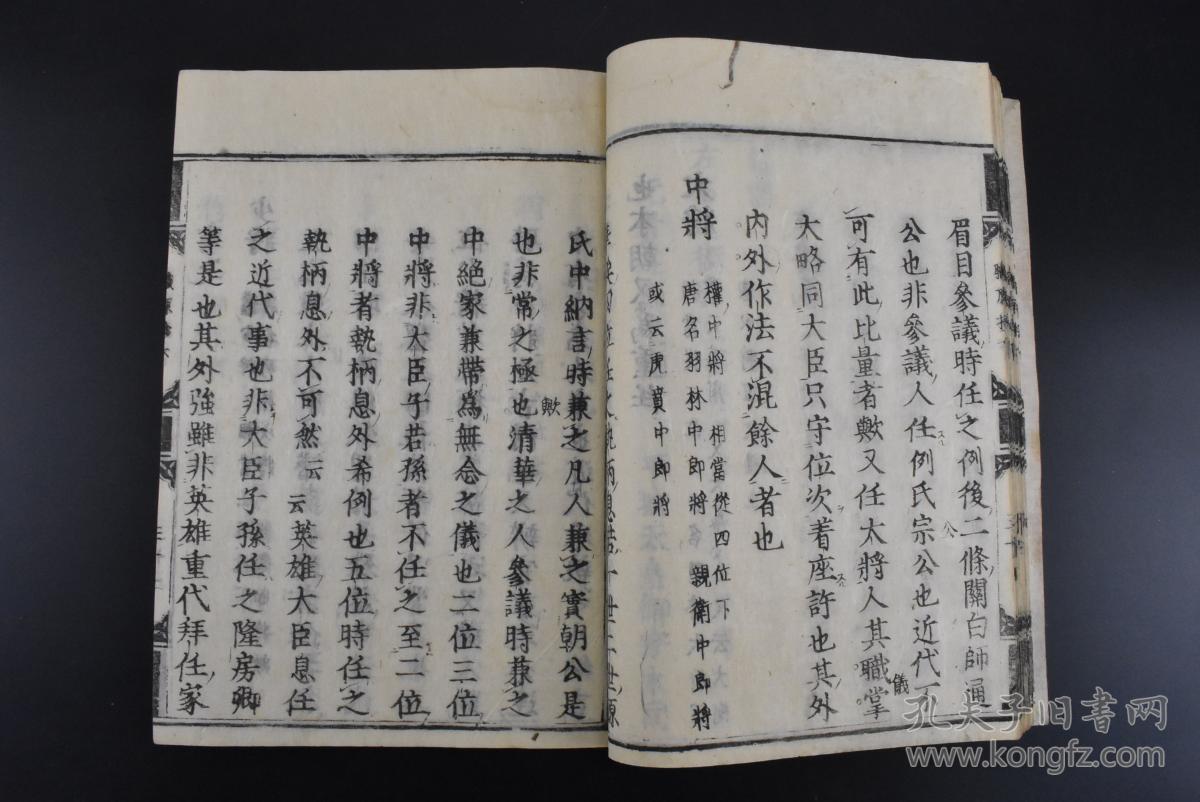 眉目參議時任之例後二條關白師通
公也非參議人任例氏宗公也近代不
可有此比量者歟又任大將人其職掌
儀
大略同大臣只守位次着座許也其外
内外作法不混餘人者也
中將
權中將 相當從四位下
唐名羽林中郎將 親衛中郎將
或云虎賁中郎將
氏中納言時兼之凡人兼之實朝公是
也非常之極也清華之人參議時兼之
歟
中絶家兼帶爲無念之儀也二位三位
中將非大臣子若孫者不任之至二位
中將者執柄息外希例也五位時任之
執柄息外不可然云云英雄大臣息任
之近代事也非大臣子孫任之隆房卿
等是也其外強雖非英雄重代拜任家
孔夫子旧书网
www.kongfz.com